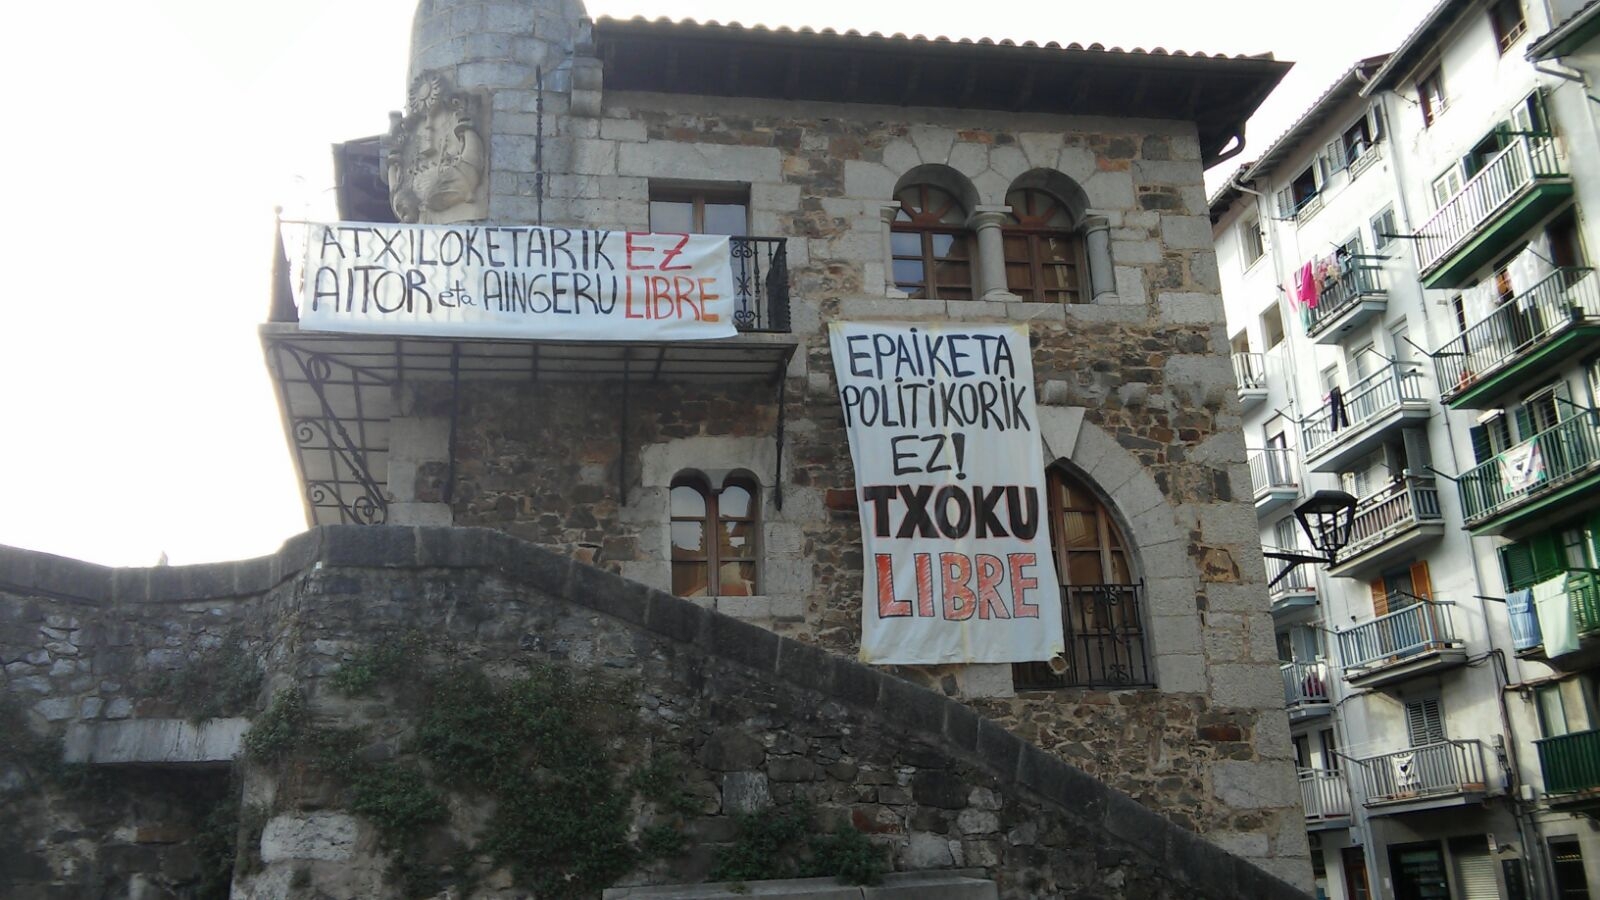 ATXILOKETARIK EZ
AITOR eta AINGERU LIBRE
EPAIKETA
POLITIKORIK
EZ!
TXOKU
LIBRE